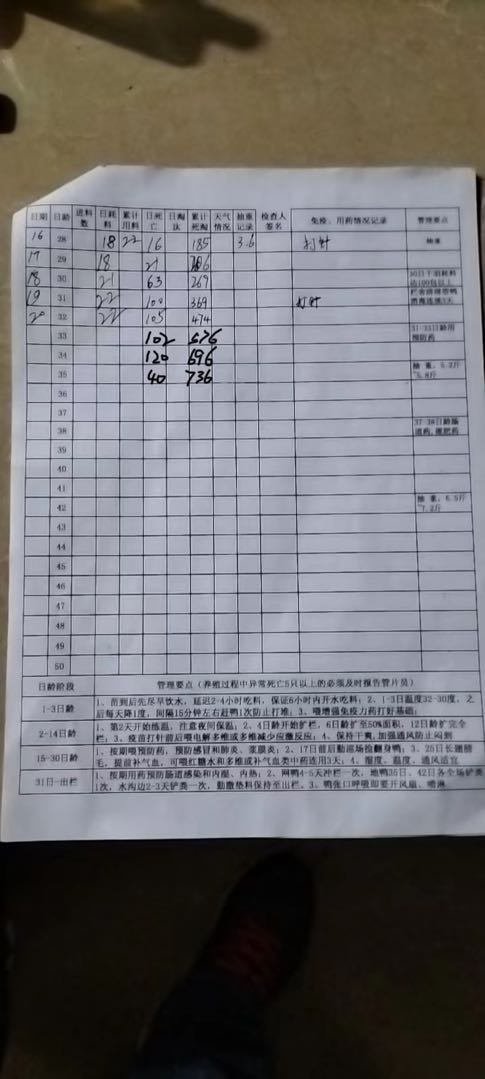 日期 日龄 进料数 日耗料 累计用料 日死亡 日淘汰 累计死淘 天气情况 抽重记录 检查人签名 免疫、用药情况记录 管理要点
16 28 18 22 16 185 3.6 打针 抽重
17 29 18 21
18 30 21 63 269 30日下羽耗料达100包以上
19 31 22 100 369 打针
20 32 22 105 474
33 102 576 31-33日龄用预防药
34 120 696
35 40 736 抽重:5.2斤-5.8斤
36
37
38 37-38日龄肠道药,催肥药
39
40
41
42 抽重:6.5斤-7.2斤
43
44
45
46
47
48
49
50
日龄阶段 管理要点(养殖过程中异常死亡5只以上的必须及时报告管片员)
1-3日龄 1、苗到后先尽早饮水,延迟2-4小时吃料,保证6小时内开水吃料;2、1-3日温度32-30度,之
后每天降1度,间隔15分钟左右赶鸭1次防止打堆;3、喂增强免疫力药打好基础;
2-14日龄 1、第2天开始炼温,注意夜间保温;2、4日龄开始扩栏,6日龄扩至50%面积,12日龄扩完全
栏;3、疫苗打针前后喂电解多维或多维减少应激反应;4、保持干爽,加强通风防止闷到
15-30日龄 1、按期喂预防药,预防感冒和肺炎、浆膜炎;2、17日前后勤巡场捡翻身鸭;3、25日长翅膀
毛,提前补气血,可喂红糖水和多维或补气血类中药连用3天;4、湿度、温度、通风适宜
31日-出栏 1、按期用药预防肠道感染和内湿、内热;2、网鸭4-5天冲栏一次,地鸭35日、42日各全场铲粪
1次,水沟边2-3天铲粪一次,勤撒垫料保持至出栏、3、鸭张口呼吸即要开风扇、喷淋